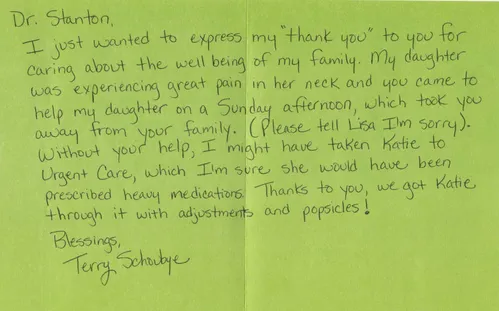 Dr. Stanton,
I just wanted to express my "thank you" to you for
caring about the well being of my family. My daughter
was experiencing great pain in her neck and you came to
help my daughter on a Sunday afternoon, which took you
away from your family. (Please tell Lisa I'm sorry).
Without your help, I might have taken Katie to
Urgent Care, which I'm sure she would have been
prescribed heavy medications. Thanks to you, we got Katie
through it with adjustments and popsicles!
Blessings,
Terry Schoubye